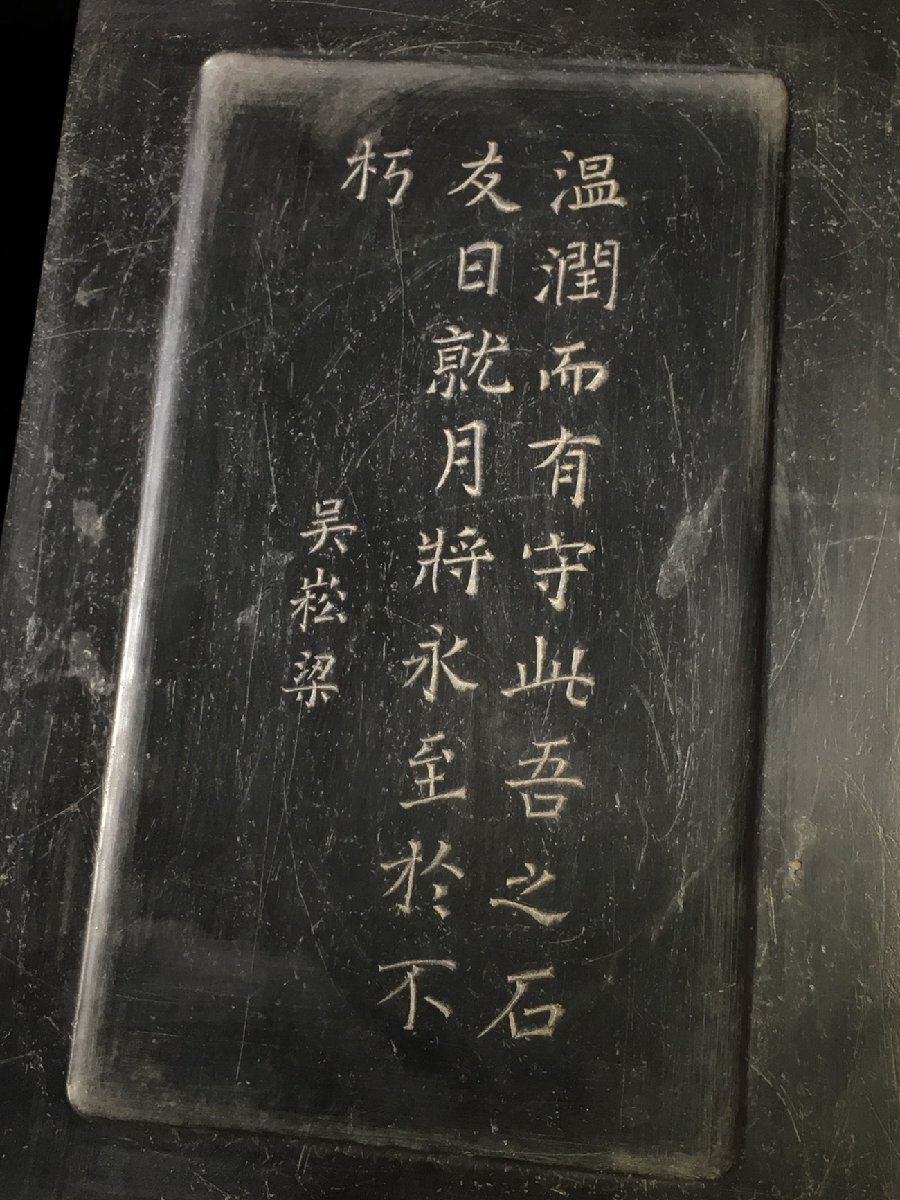 温潤而有守此吾之石
友日就月將永至於不
朽
吴崧梁